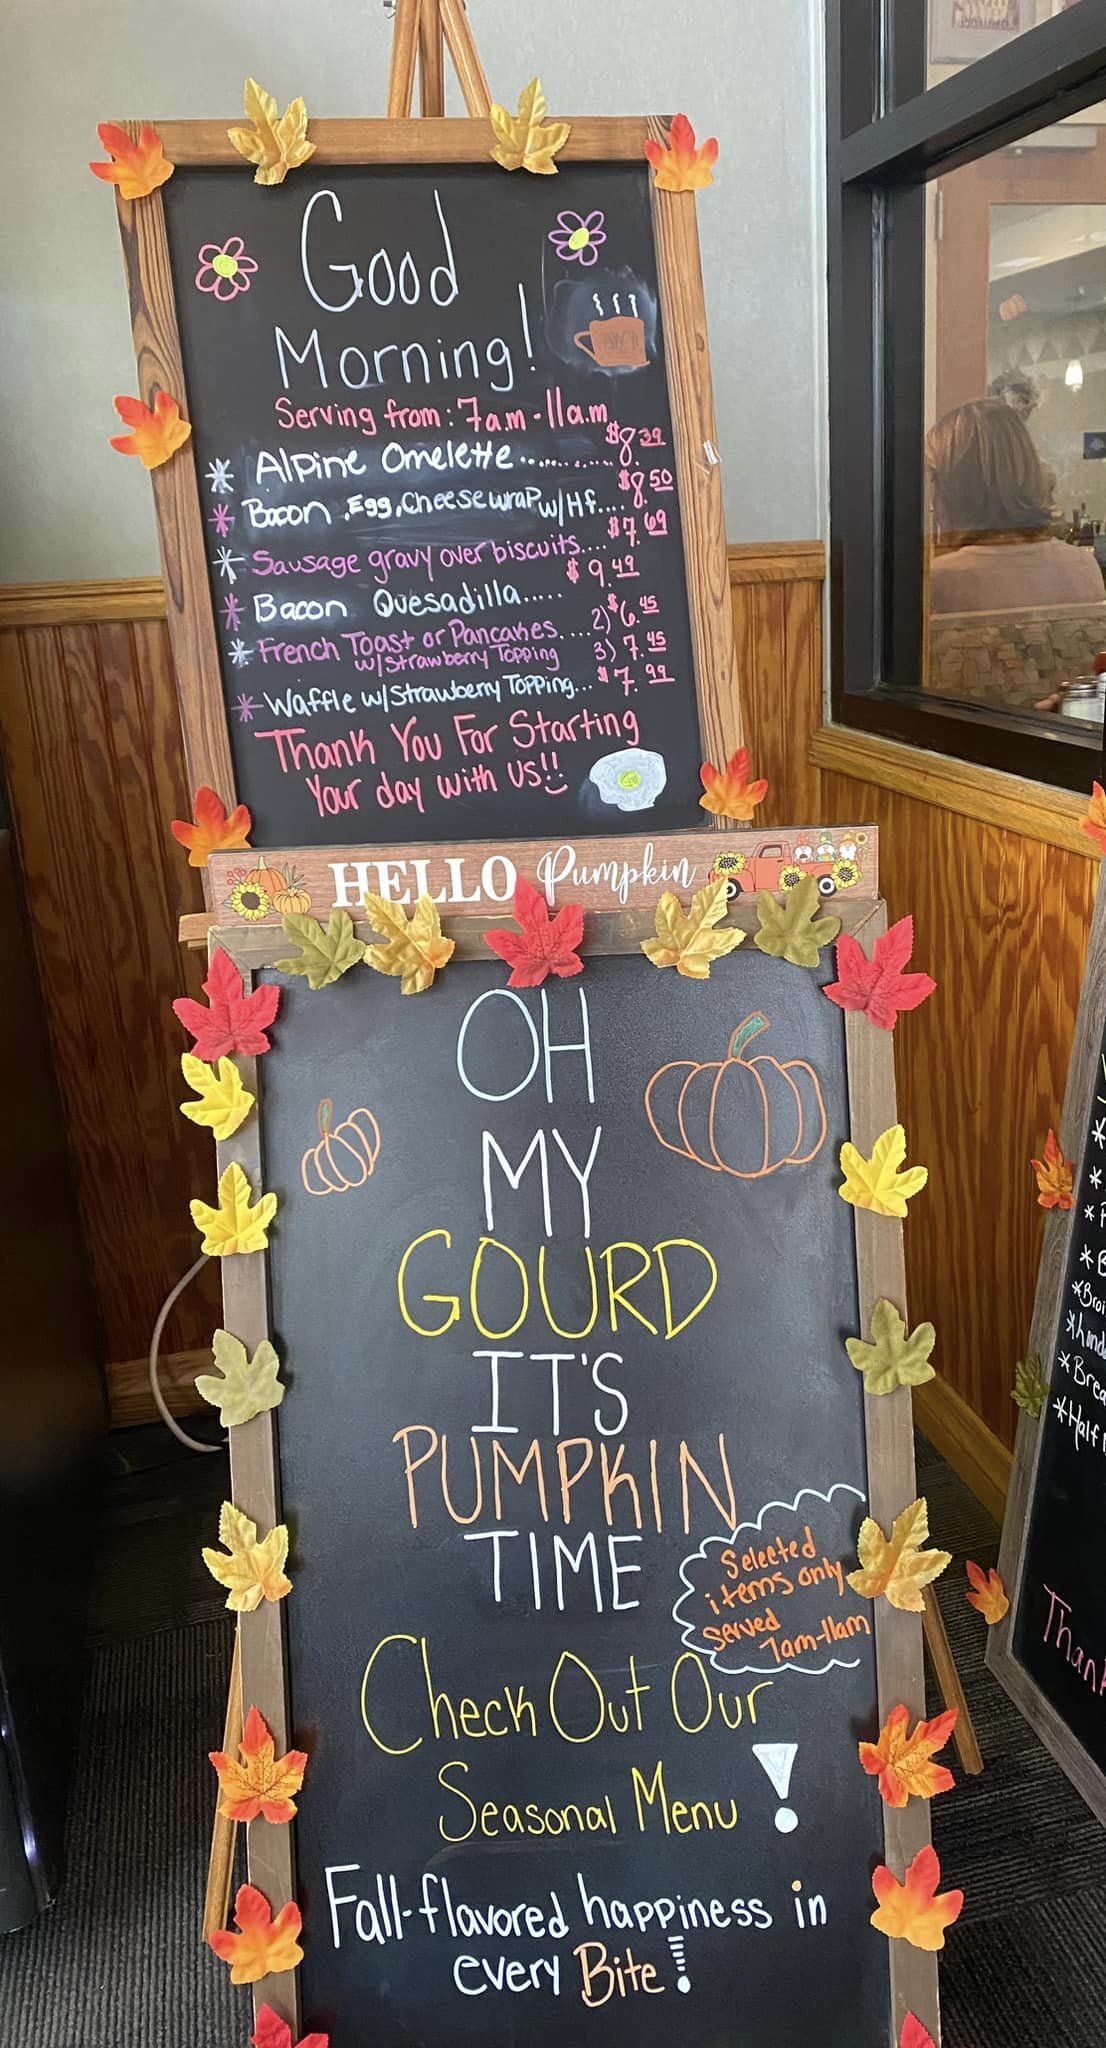 Good
Morning!
Serving from: 7am-11a.m
* Alpine Omelette........... $8.39
* Bacon, Egg, Cheese wrap w/Hf.... $8.50
* Sausage gravy over biscuits.... $7.69
* Bacon Quesadilla..... $9.49
* French Toast or Pancakes.... 2) $6.45
w/Strawberry Topping 3) 7.45
* Waffle w/Strawberry Topping... $7.99
Thank You For Starting
Your day with us!!
HELLO Pumpkin
OH
MY
GOURD
IT'S
PUMPKIN
TIME
Selected
items only
served
7am-11am
Check Out Our
Seasonal Menu!
Fall-flavored happiness in
every Bite!
*Half